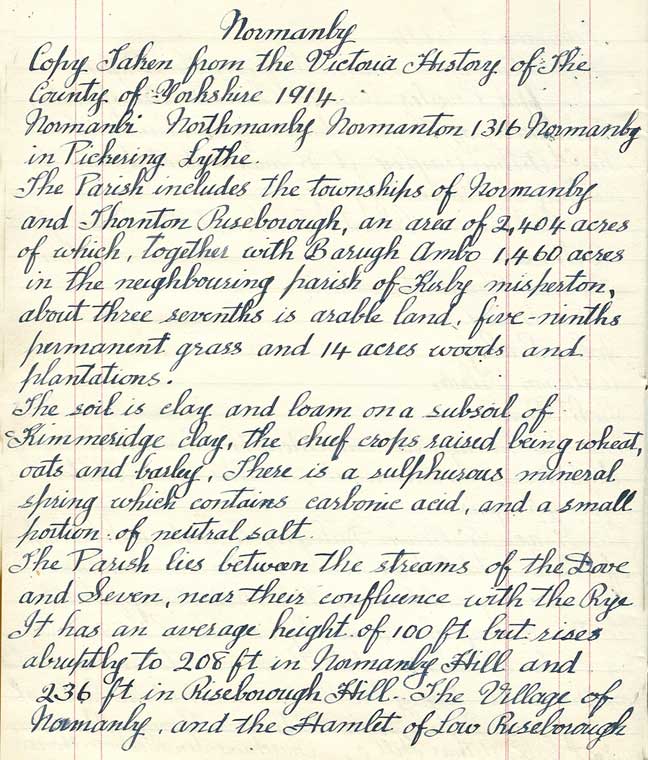 Normanby
Copy Taken from the Victoria History of The
County of Yorkshire 1914.
Normanbi Northmanby Normanton 1316 Normanby
in Pickering Lythe.
The Parish includes the townships of Normanby
and Thornton Riseborough, an area of 2,404 acres
of which, together with Barugh Ambo 1,460 acres
in the neighbouring parish of Kirby misperton,
about three sevenths is arable land, five-ninths
permanent grass and 14 acres woods and
plantations.
The soil is clay and loam on a subsoil of
Kimmeridge clay, the chief crops raised being wheat,
oats and barley. There is a sulphurous mineral
spring which contains carbonic acid, and a small
portion of neutral salt.
The Parish lies between the streams of the Dove
and Seven, near their confluence with the Rye
It has an average height of 100 ft but rises
abruptly to 208 ft in Normanby Hill and
236 ft in Riseborough Hill. The Village of
Normanby, and the Hamlet of Low Riseborough